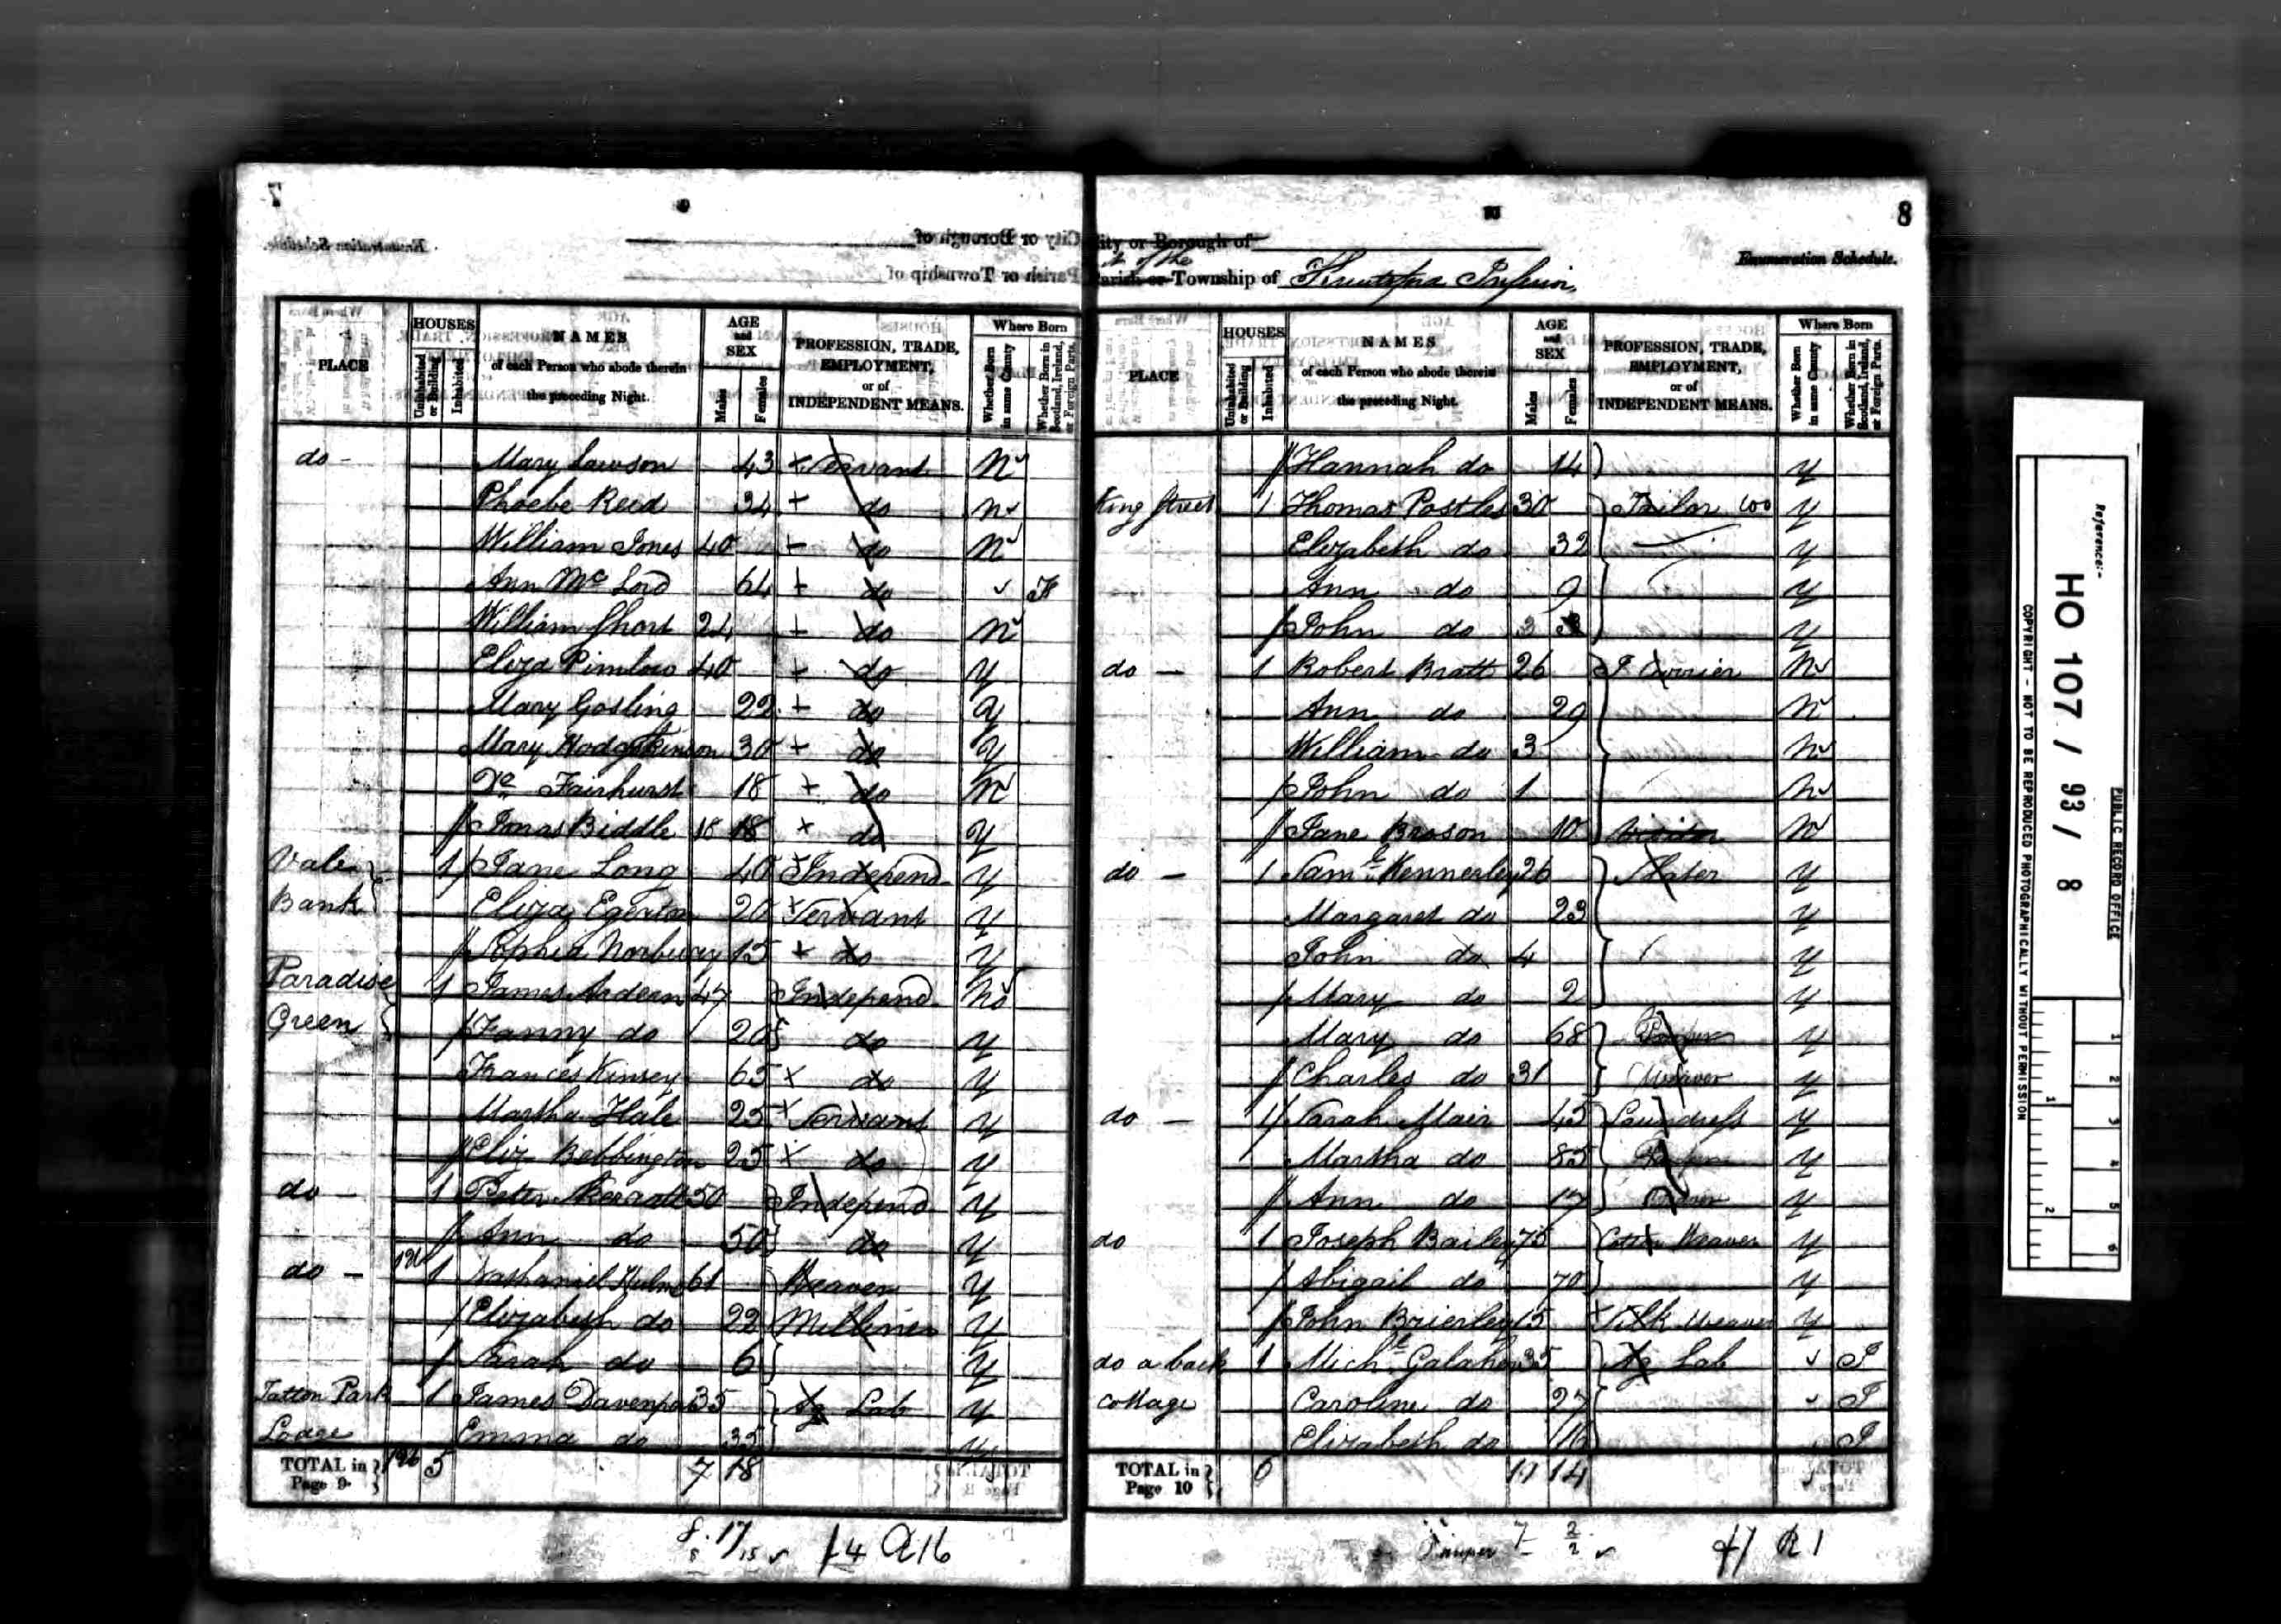 7
Enumeration Schedule.
City or Borough of
Parish or Township of
PLACE
HOUSES
Uninhabited or Building
Inhabited
NAMES
of each Person who abode therein
the preceding Night.
AGE
and
SEX
Males
Females
PROFESSION, TRADE,
EMPLOYMENT,
or of
INDEPENDENT MEANS.
Where Born
Whether Born in same County
Whether Born in Scotland, Ireland, or Foreign Parts.
do - Mary Lawson 43 + Servant N
Phoebe Reed 34 + do N
William Jones 40 + do N
Ann Mc Lord 64 + do F
William Short 24 + do N
Eliza Pimlow 40 + do Y
Mary Gosling 22 + do Y
Mary Hodgkinson 30 + do Y
Do Fairhurst 18 + do N
Jonas Biddle 18 18 + do Y
Vale 1 Jane Long 40 + Independ Y
Bank Eliza Egerton 20 + Servant Y
Sophia Norbury 15 + do Y
Paradise 1 James Ardern 47 Independ No
Green Fanny do 20 do Y
Frances Kinsey 65 x do Y
Martha Hale 25 x Servant Y
Eliz Bebbington 25 x do Y
do - 1 Peter Skerratt 50 Independ Y
Ann do 50 do Y
do - 1 Nathaniel Hulme 61 Weaver Y
Elizabeth do 22 Milliner Y
Sarah do 6 Y
Tatton Park 1 James Davenport 35 Ag Lab Y
Lodge Emma do 35 Y
TOTAL in
Page 9 5 7 18
8 17 14 R 16
8
City or Borough of
Enumeration Schedule.
of the
Parish or Township of Knutsford Inferior
PLACE
HOUSES
Uninhabited or Building
Inhabited
NAMES
of each Person who abode therein
the preceding Night.
AGE
and
SEX
Males
Females
PROFESSION, TRADE,
EMPLOYMENT,
or of
INDEPENDENT MEANS.
Where Born
Whether Born in same County
Whether Born in Scotland, Ireland, or Foreign Parts.
Hannah do 14 Y
King Street 1 Thomas Postles 30 Tailor Y
Elizabeth do 32 Y
Ann do 9 Y
John do 3 Y
do - 1 Robert Bratt 26 J Currier N
Ann do 29 N
William do 3 N
John do 1 N
Jane Brason 10 Visitor N
do - 1 Saml Kennerley 26 Slater Y
Margaret do 23 Y
John do 4 Y
Mary do 2 Y
Mary do 68 Pauper Y
Charles do 31 Weaver Y
do - 1 Sarah Mair 45 Laundress Y
Martha do 85 Pauper Y
Ann do 17 Y
do 1 Joseph Bailey 75 Cotton Weaver Y
Abigail do 70 Y
John Brierley 15 x Silk Weaver Y
do a back 1 Michl Galahor 35 Ag Lab I
cottage Caroline do 27 I
Elizabeth do 16 I
TOTAL in
Page 10 6 11 14
Pauper 2 R 1
Reference:-
HO 107 / 93 / 8
PUBLIC RECORD OFFICE
COPYRIGHT - NOT TO BE REPRODUCED PHOTOGRAPHICALLY WITHOUT PERMISSION
1 2 3 4 5 6
1 2